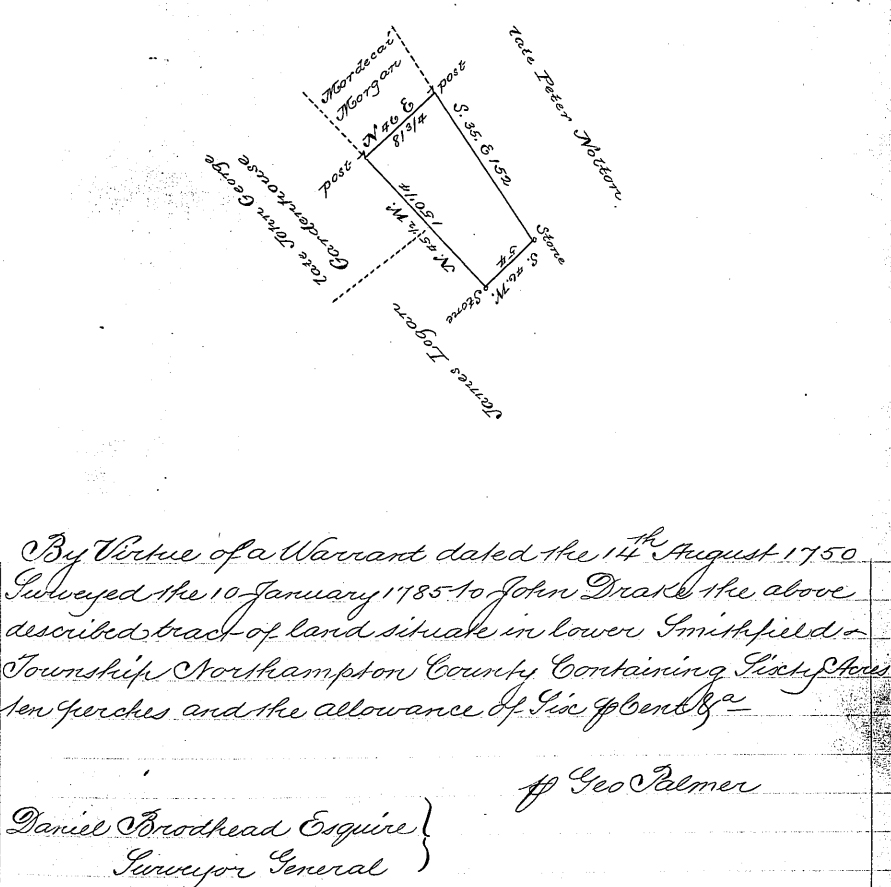 Mordecai
Morgan
post
late Peter Notton.
N 46 E
81 3/4
S. 35. E 152
post
late John George
Gardenhouse
N. 45 1/2 W.
150 1/4
Stone
S. 46. W.
54
Stone
James Logan
By Virtue of a Warrant dated the 14th August 1750
Surveyed the 10 January 1785 to John Drake the above
described tract of land situate in lower Smithfield
Township Northampton County Containing Sixty Acres
ten perches and the allowance of Six ⅌ Cent &a
⅌ Geo Palmer
Daniel Brodhead Esquire }
Surveyor General